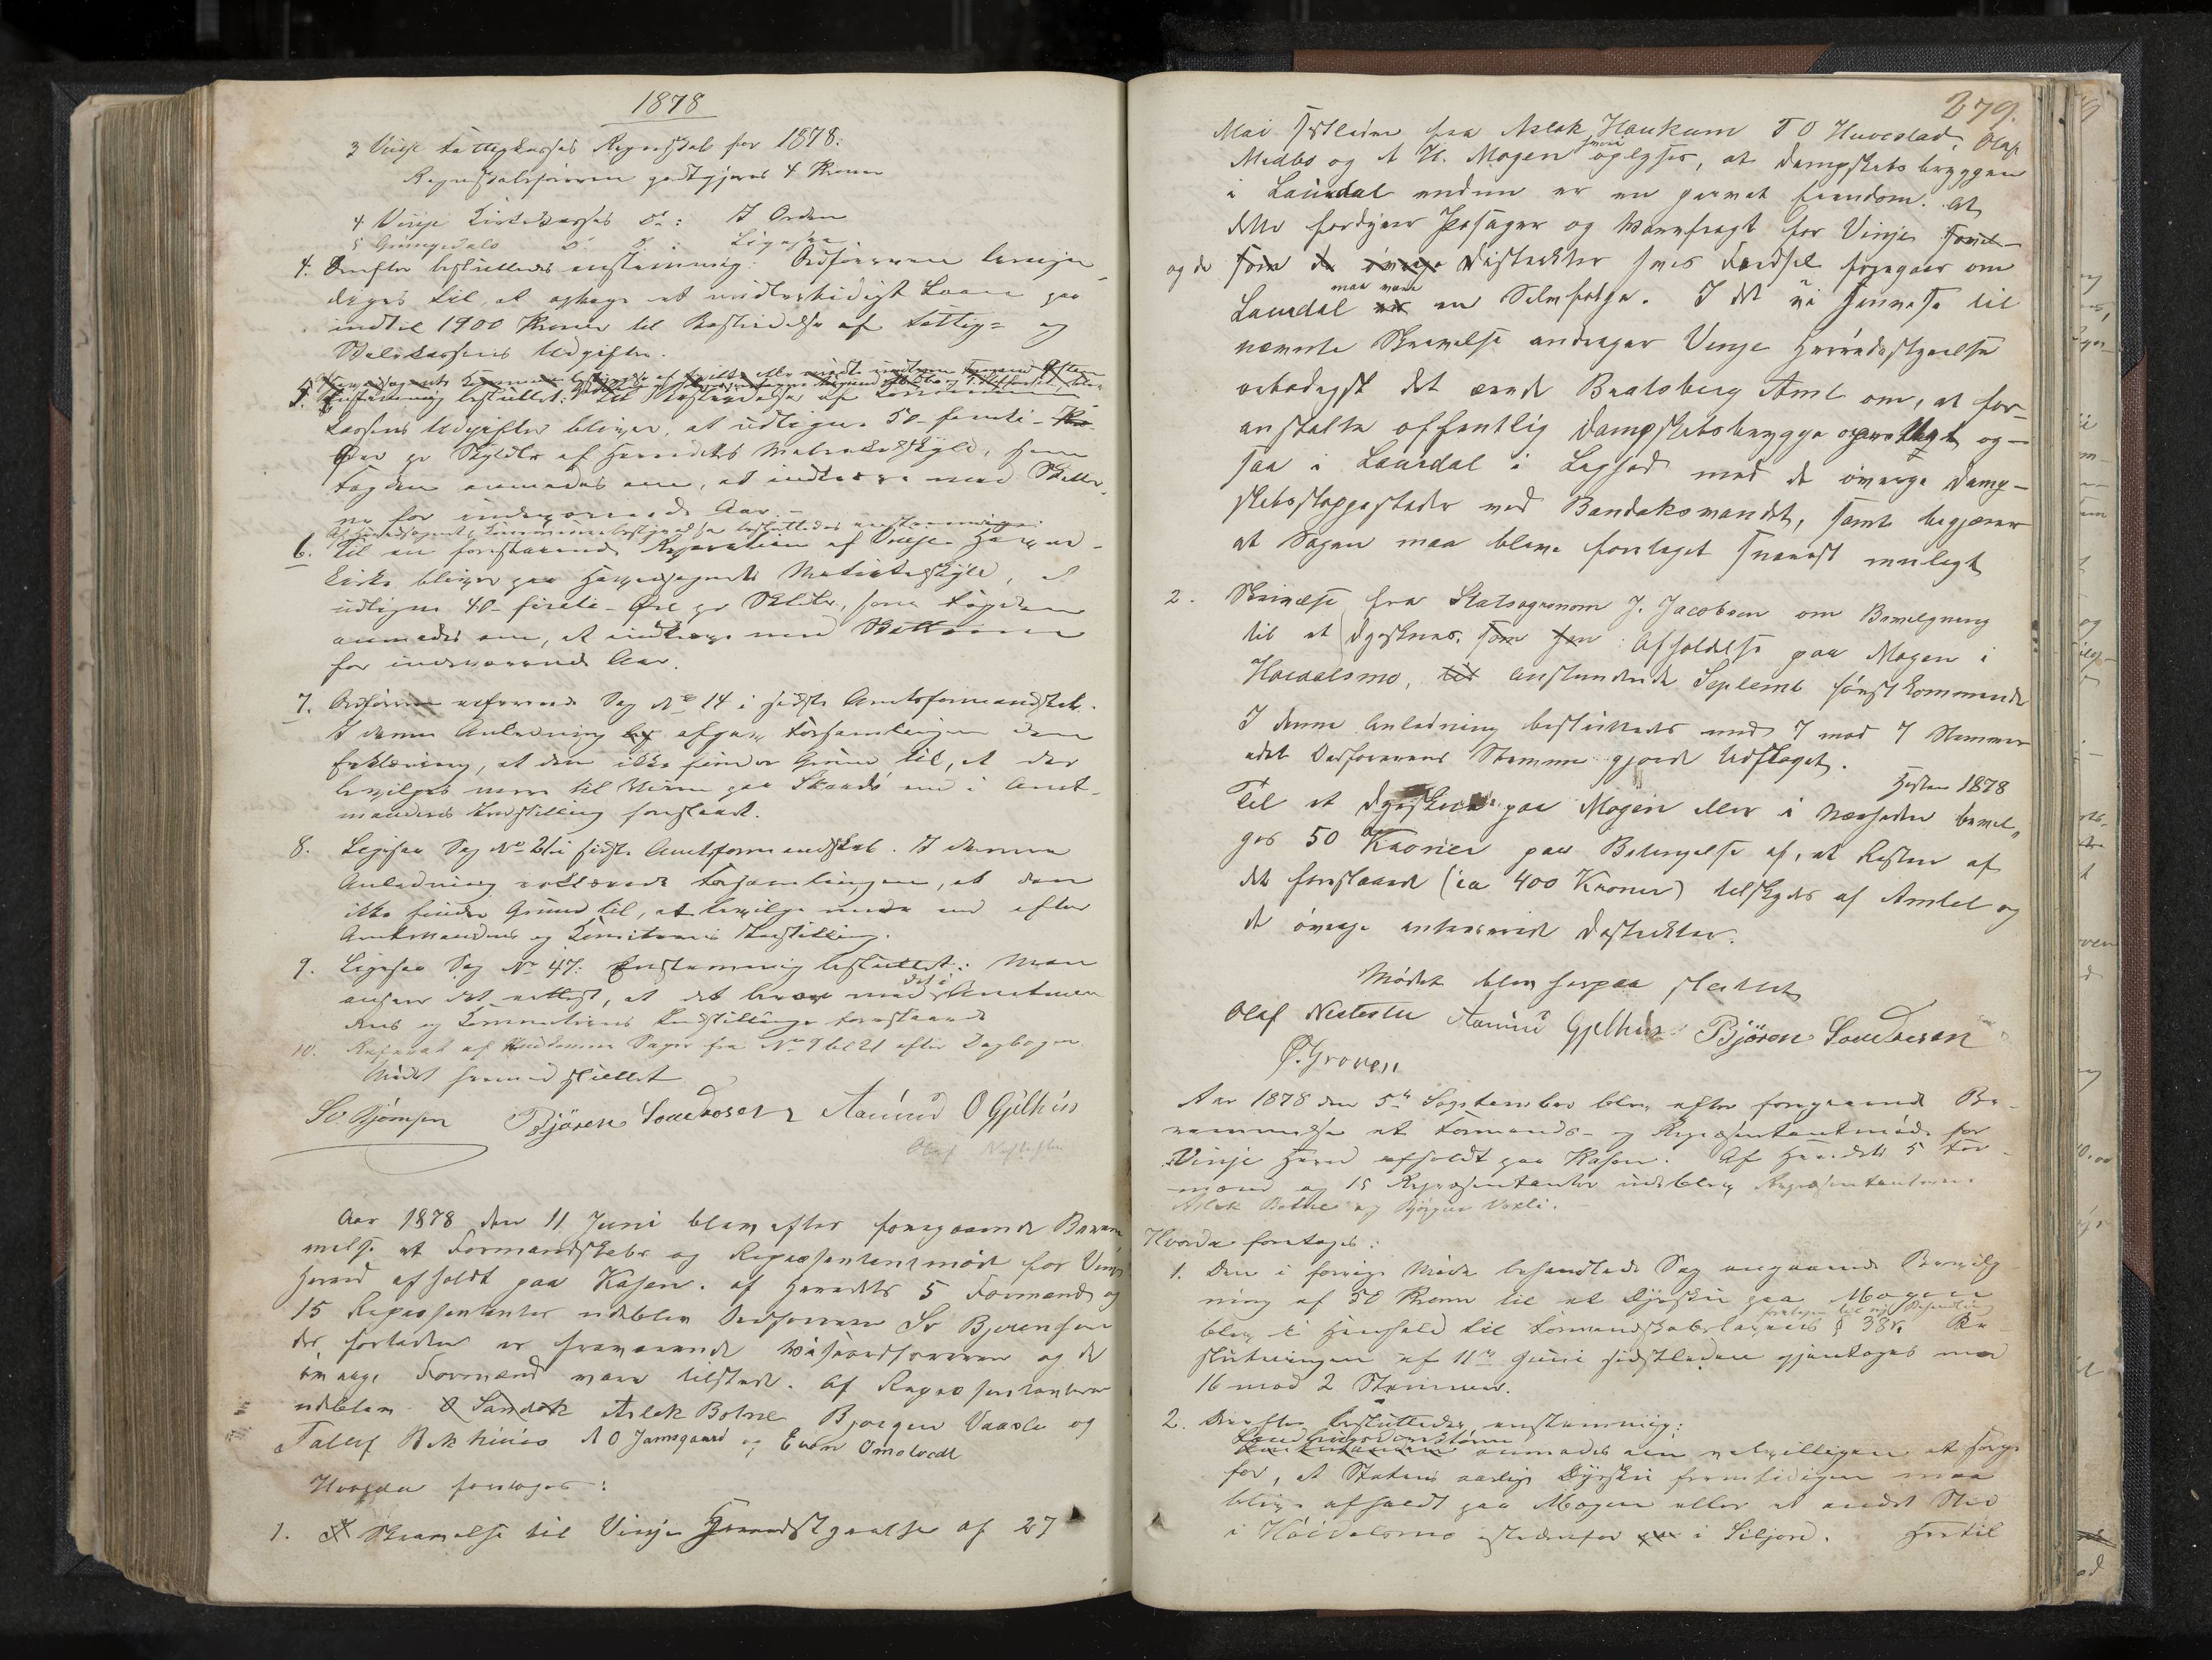 1878
3 Vinje Fattigkasses Regnskab for 1878:
Regnskabsføreren godtgjøres 4 Kroner
4 Vinje Kirkekasses do: I Orden
5 Grungedals do do: Ligesaa
4. Derefter besluttedes enstemmig: Ordføreren bemyn-
diges til at optage et midlertidigt Laan paa
indtil 1900 Kroner til Bestridelse af Fattig= og
Skolekassens Udgifter.
5. Enstemmig besluttet: Til Bestridelse af Kommune
kassens Udgifter bliver at udligne 50 - femti -
Øre pr Skylddlr af Herredets Matrikulskyld, som
Fogden anmodes om, at indkræve med Skatter-
ne for indeværende Aar. -
Af Hovedsognets Kommunebestyrelse besluttedes enstemmigen:
6. Til en forestaaende Reparation af Vinje Hoved-
kirke bliver paa Hovedsognets Matrikulskyld, at
udligne 40 - firti - Øre pr Skylddlr, som Fogden
anmodes om, at indkræve med Skatterne
for indeværende Aar.
7. Ordføreren refererede Sag No 14 i sidste Amtsformandskab.
I denne Anledning afgav Forsamlingen den
Erklæring, at den ikke finder Grund til, at der
bevilges mere til Veien paa end i Amt-
mandens Indstilling foreslaaet.
8. Ligesaa Sag No 21 i sidste Amtsformandskab. I denne
Anledning erklærede Forsamlingen, at den
ikke finder Grund til, at bevilge mere end efter
Amtmandens og Komiteens Indstilling.
9. Ligesaa Sag No 47: Enstemmig besluttet: Man
anser det rettest, at det bliver med det i Amtman
dens og Kommitteens Indstillinger foreslaaede
10. Referat af Sager fra No 9 til 21 efter Dagbogen
Mødet hermed sluttet
Sv. Bjørnsen Bjøren Sondresen Aamund O Gjelhus
Olaf Nestestu
Aar 1878 den 11 Juni blev efter foregaaende Beram
melse et Formandskabs og Repræsentantmøde for Vinje
Herred afholdt paa Kasen. af Herredets 5 Formænd og
15 Repræsentanter udeblev Ordføreren Sv Bjørensen
der forleden er fraværende Viseordføreren og de
øvrige Formænd vare tilstede. Af Repræsentanterne
udeblev O Sandok Aslek Botne Bjørgen Vaaxli og
Talleif Bekhuus A O Jamsgaard og Even Omotvedt
Hvorda foretoges:
1. Skrivelse til Vinje Herredstyrelse af 27
379.
Mai sistleden fra Aslak Haukum T O Huvestad, Olaf
Midbø og A H. Mogen hvori oplyses, at Dampskibsbryggen
i Laurdal endnu er en privat Eiendom. At
dette fordyrer Passager og Varefragt for Vinje
og de som de øvrige Distrikter hvis Færdsel foregaar om
Laurdal maa være en Selvfølge. I det vi henvise til
nævnte Skrivelse andrager Vinje Herredsstyrelse
ærbødigst det ærede Bratsberg Amt om, at for-
anstalte offentlig Dampskibsbrygge oprettet og-
saa i Laurdal i Lighed med de øvrige Damp-
skibsstoppesteder ved Bandaksvandet, samt begjærer
at Sagen maa blive foretaget snarest mulegt
2. Skrivelse fra Statsagronom J. Jacobsen om Bevilgning
til at Dyrskues Afholdelse paa Mogen i
Høidalsmo, anstundende Septemb. førstkommende
I denne Anledning besluttedes med 7 mod 7 Stemmer
idet Ordførerens Stemme gjorde Udslaget.
Høsten 1878
Til et Dyrskue paa Mogen eller i Nærheden bevil-
ges 50 Kroner paa Betingelse af, at Resten af
det foreslaaede (ca 400 Kroner) tilskydes af Amtet og
de øvrige interesserede Distrikter.
Mødet blev herpaa sluttet
Olaf Nestestu Aamund Gjelhus Bjøren Sondresen
Ø. Groven
Aar 1878 den 5te September blev efter foregaaende Be-
rammelse et Formands- og Repræsentantmøde for
Vinje Herred afholdt paa Kasen. Af Herredets 5 For-
mænd og 15 Repræsentanter udeblev Repræsentanterne
Aslak Botne og Bjørgen Vaxli.
Hvorda foretoges:
1. Den i forrige Møde behandlede Sag angaaende Bevilg
ning af 50 Kroner til et Dyrskue paa Mogen
blev i Henhold til Formandskabslovens § 38 foretagen til ny Behandling. Be
slutningen af 11te Juni sidstleden gjentoges med
16 mod 2 Stemmer.
2. Derefter besluttedes enstemmig:
Landbrugsdirektøren anmodes om velvilligen at sørge
for, at Statens aarlige Dyrskue fremtidigen maa
blive afholdt paa Mogen eller et andet Sted
i Høidalsmo istedenfor i Siljord. Hertil